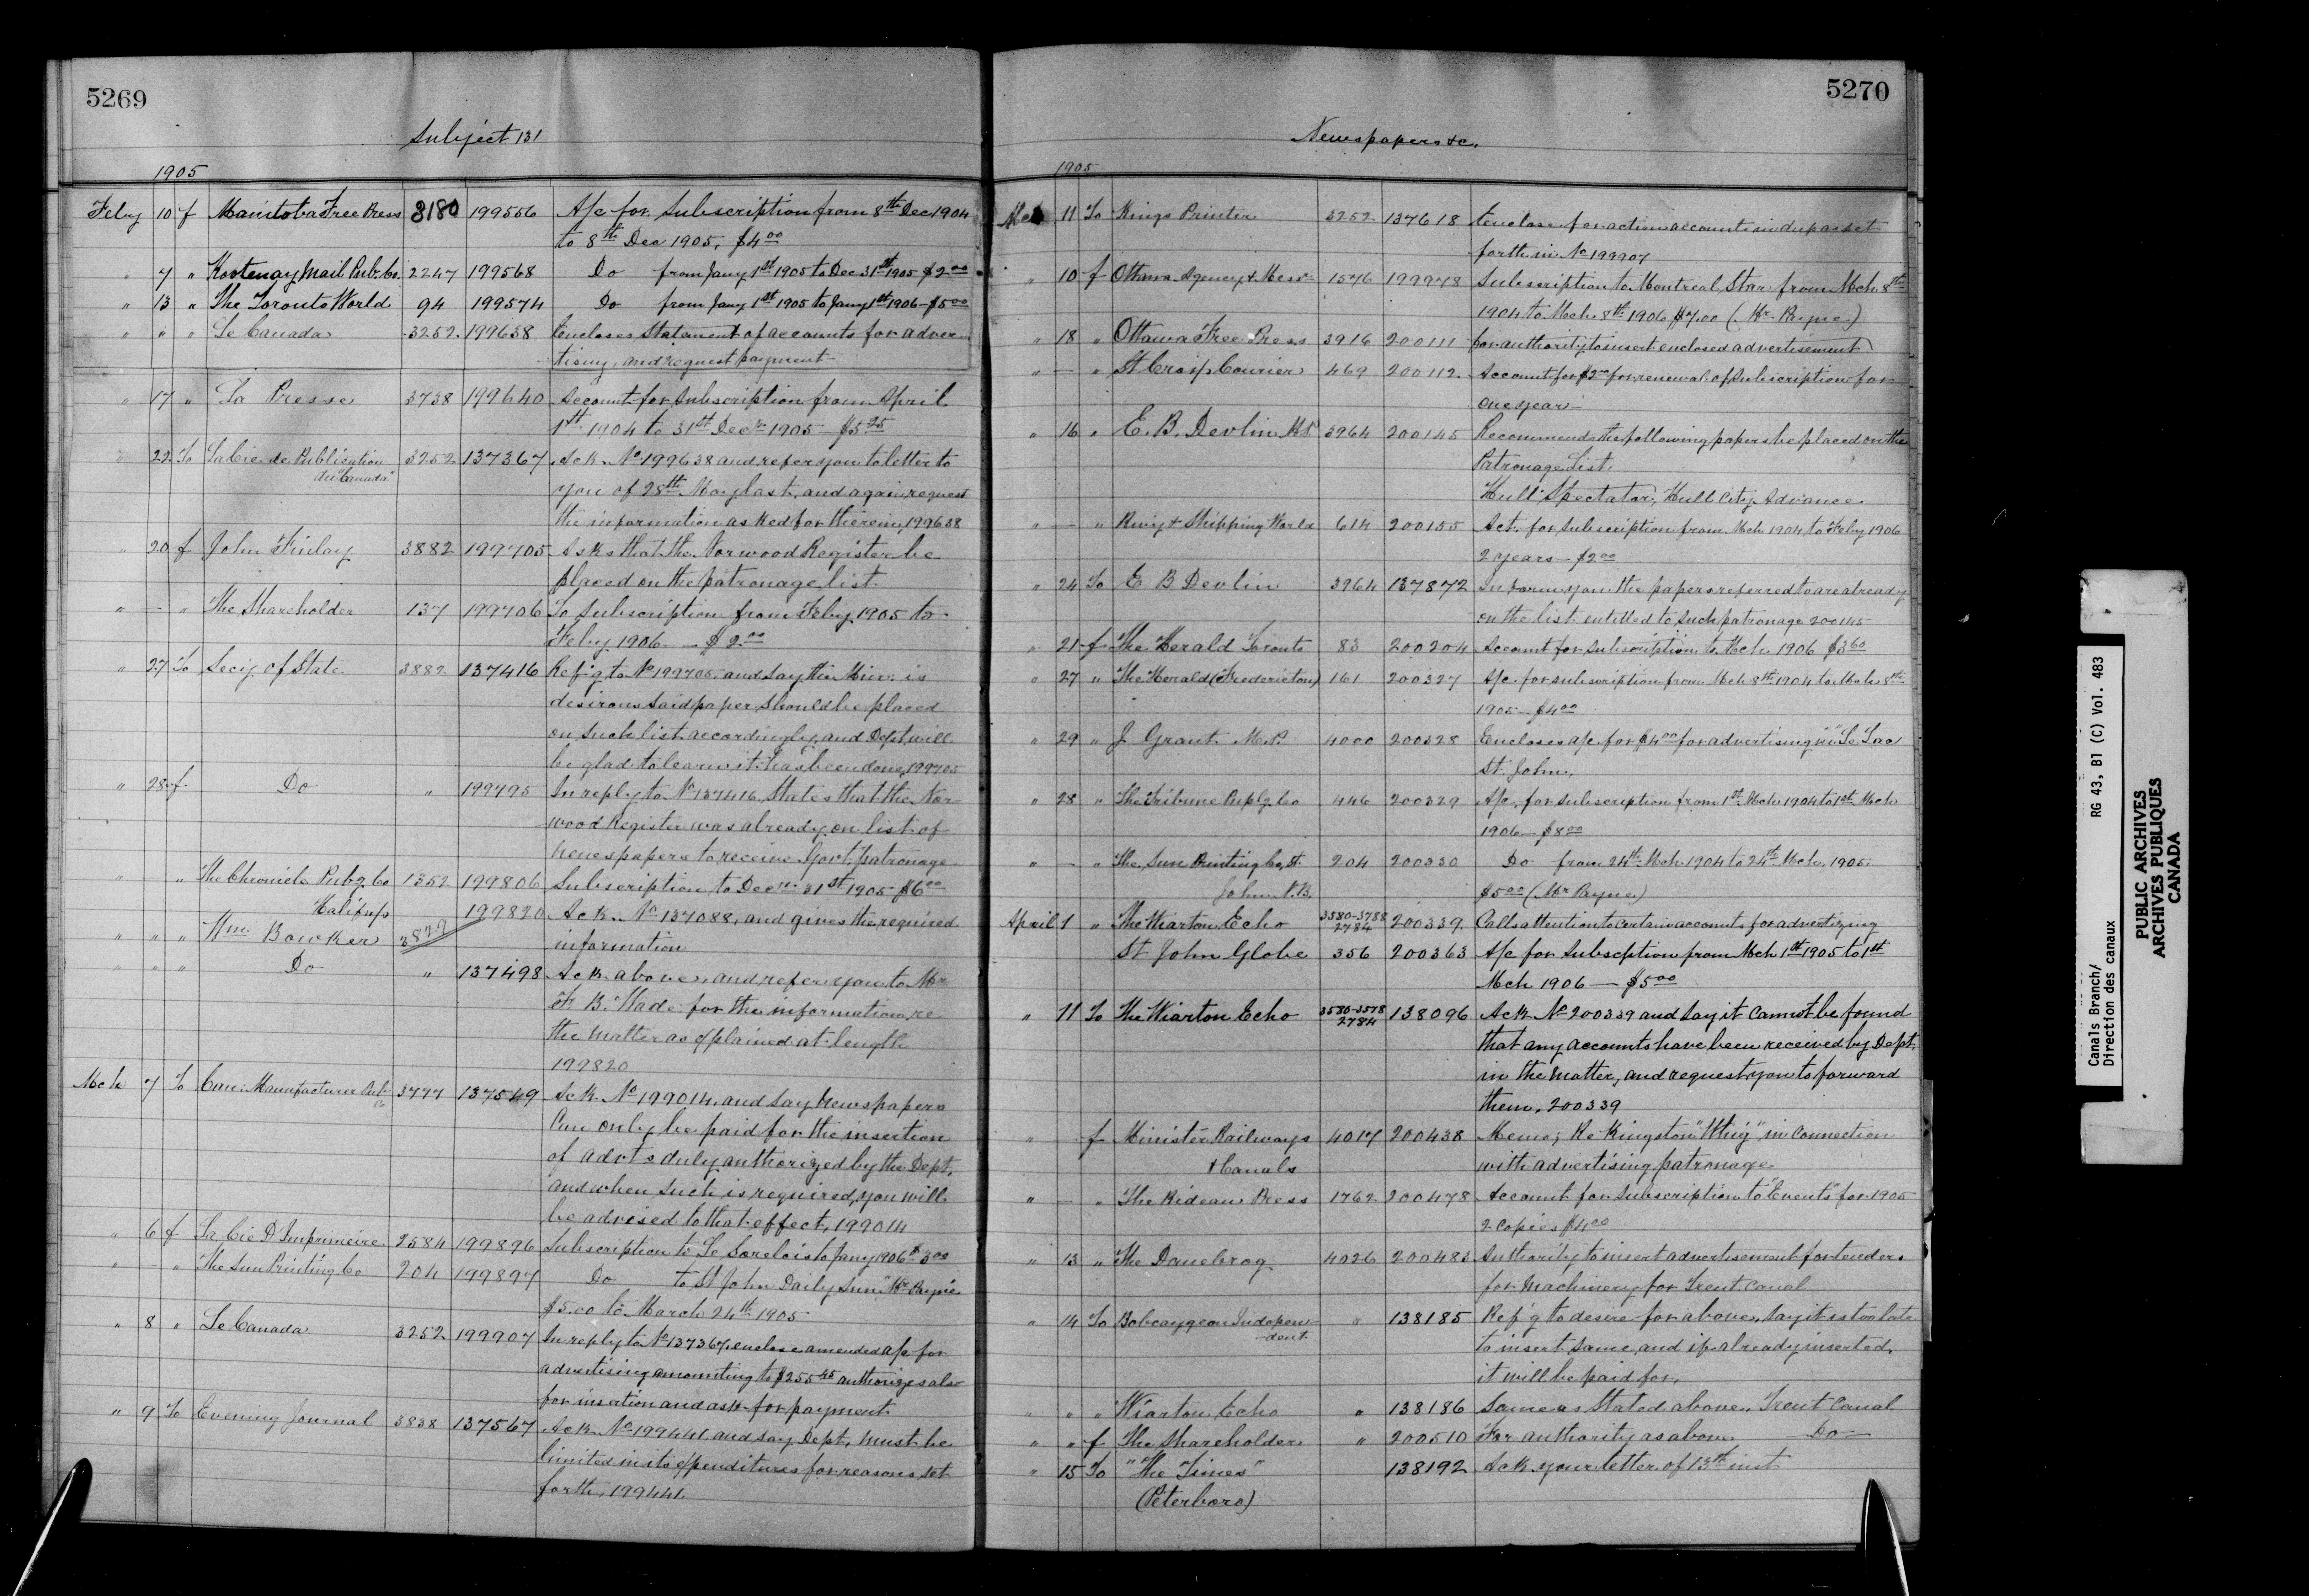 5269
Subject 131
1905
Feby 10 f Manitoba Free Press 3180 199556 A/c for Subscription from 8th Dec 1904
to 8th Dec 1905, $4.00
" 7 " Kootenay Mail Pub. Co. 2247 199568 Do from Jany 1st 1905 to Dec 31st 1905 $2.00
" 13 " The Toronto World 94 199574 Do from Jany 1st 1905 to Jany 1st 1906 - $5.00
" " " Le Canada 3252 199638 Encloses Statement of accounts for adver-
tising, and request payment
" 17 " La Presse 3738 199640 Account for Subscription from April
1st 1904 to 31st Decr 1905 - $5.25
" 22 To La Cie de Publication 3252 137367 Ack. No 199638 and refer you to letter to
du "Canada"
you of 28th May last, and again request
the information asked for therein, 199638
" 20 f John Finlay 3882 199705 Asks that the Norwood Register be
placed on the patronage list
" - " The Shareholder 137 199706 To Subscription from Feby 1905 to
Feby 1906 - $2.00
" 27 To Secy. of State 3882 137416 Ref'g to No 199705, and say the Min: is
desirous said paper should be placed
on such list accordingly, and Dept will
be glad to learn it has been done, 199705
" 28 f Do " 199795 In reply to No 137416, States that the Nor-
wood Register was already on list of
newspapers to receive Govt. patronage
" - " The Chronicle Pubg Co 1352 199806 Subscription to Decr 31st 1905 $6.00
Halifax
" " " Wm. Bowker 199820 Ack. No 137088, and gives the required
information
" " " Do " 137498 Ack above, and refer you to Mr
F. B. Wade for the information re
the matter as explained at length
199820
Mch 7 To Can: Manufacturer Pub Co 3777 137549 Ack. No 199014, and say newspapers
can only be paid for the insertion
of advts duly authorized by the Dept,
and when such is required, you will
be advised to that effect, 199014
" 6 f La Cie D'Imprimeire 2584 199896 Subscription to Le Sorelois to Jany 1906 $3.00
" - " The Sun Printing Co 204 199897 Do to St John Daily Sun, "Mr Payne
$5.00 to March 24th 1905
" 8 " Le Canada 3252 199907 In reply to No 137367, enclose amended a/c for
advertising amounting to $255.45 authorizes also
for insertion and ask for payment
" 9 To Evening Journal 3838 137567 Ack No 199441 and say Dept, must be
limited in its expenditures for reasons set
forth, 199441.
5270
Newspapers &c.
1905
Mch 11 To Kings Printer 3252 137618 Enclose for action accounts in dup as set
forth in No 199907
" 10 f Ottawa Agency & Mess- 1576 199978 Subscription to Montreal Star from Mch 8th
1904 to Mch 8th 1906 $7.00 (Mr. Payne)
" 18 " Ottawa Free Press 3916 200111 for authority to insert enclosed advertisement
" - " St Croix Courier 469 200112 Account for $2.00 for renewal of Subscription for
one year
" 16 " E. B. Devlin M.P. 3964 200145 Recommends the following papers be placed on the
Patronage List.
Hull Spectator, Hull City Advance
" - " Rwy & Shipping World 614 200155 Act. for Subscription from Mch 1904 to Feby 1906
2 years - $2.00
" 24 To E B Devlin 3964 137872 Inform you the papers referred to are already
on the list entitled to such patronage 200145
" 21 f The Herald Toronto 83 200204 Account for Subscription to Mch 1906 $3.60
" 27 " The Herald (Fredericton) 161 200327 A/c. for subscription from Mch 8th 1904 to Mch 8th
1905 - $4.00
" 29 " J Grant M.P. 4000 200328 Encloses a/c for $4.00 for advertising in "Le Lac
St. John,
" 28 " The Tribune Publg Co 446 200329 A/c, for subscription from 1st Mch 1904 to 1st Mch
1906 - $8.00
" - " The Sun Printing Co, St. 204 200330 Do from 24th Mch 1904 to 24th Mch, 1905.
John N.B. $5.00 (Mr Payne)
April 1 " The Wiarton Echo 3580-3788 2784 200339 Calls attention to certain accounts for advertizing
St John Globe 356 200363 A/c for Subscption from Mch 1st 1905 to 1st
Mch 1906 - $5.00
" 11 To The Wiarton Echo 3580-3578 2784 138096 Ack No 200339 and say it cannot be found
that any accounts have been received by Dept.
in the matter, and request you to forward
them, 200339
" f Minister Railways 4017 200438 Memo; Re Kingston "Whig" in connection
& Canals with advertising patronage
" - " The Rideau Press 1762 200478 Account for Subscription to "Events" for 1905
2 copies $4.00
" 13 " The Danebrog 4026 200483 Authority to insert advertisement for tenders
for Machinery for Trent Canal
" 14 To Bobcaygeon Indepen- " 138185 Ref'g to desire for above, say it is too late
-dent
to insert same, and if already inserted,
it will be paid for,
" " " Wiarton Echo " 138186 Same as stated above, Trent Canal
" " f The Shareholder " 200510 For authority as above - Do -
" 15 To "The Times" 138192 Ack your letter of 13th inst
(Peterboro)
Canals Branch/ RG 43, B1 (C) Vol. 483
Direction des canaux
PUBLIC ARCHIVES
ARCHIVES PUBLIQUES
CANADA